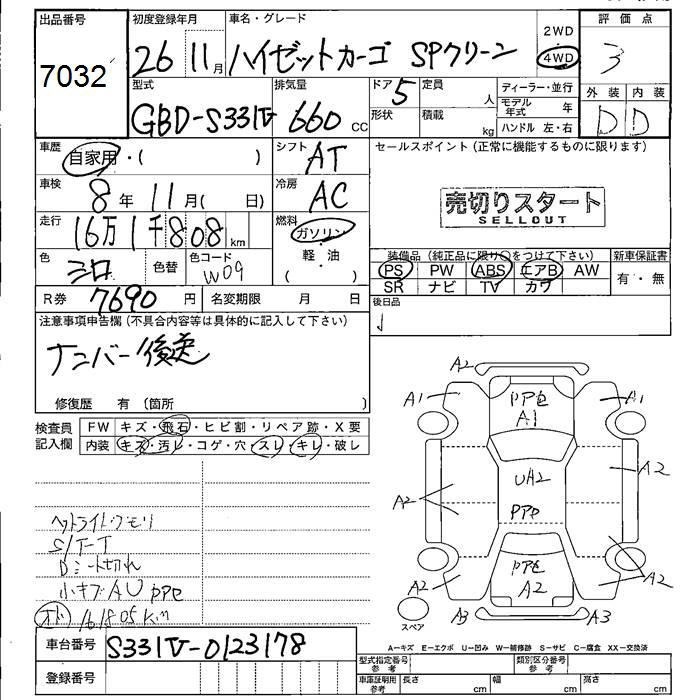 出品番号
7032
初度登録年月
26 11月
車名・グレード
ハイゼットカーゴ SPクリーン
2WD
4WD
評価点
3
型式
GBD-S331V
排気量
660 cc
ドア
5
形状
定員
人
積載
kg
ディーラー・並行
モデル年式 年
ハンドル 左・右
外装 内装
D D
車歴
自家用・( )
シフト
AT
セールスポイント(正常に機能するものに限ります)
車検
8年 11月( 日)
冷房
AC
売切りスタート
SELLOUT
走行
16万1千808km
燃料
ガソリン
軽・油
( )
色
シロ
色替
色コード
W09
装備品(純正品に限り○をつけて下さい)
PS PW ABS エアB AW
SR ナビ TV カワ
新車保証書
有・無
R券 7690円
名変期限 月 日
後日品
注意事項申告欄(不具合内容等は具体的に記入して下さい)
ナンバー後送
修復歴 有 (箇所 )
検査員記入欄
FW キズ・飛石・ヒビ割・リペア跡・X要
内装 キズ・汚レ・コゲ・穴・スレ・キレ・破レ
ヘッドライトクモリ
S/T-T
Dシート切れ
小キズAU PPe
オド 161805Km
A2
A1
PPe
A1
A1
UA2
PPe
A2
A2
PPe
A2
A2
A2
A3
A3
スペア
車台番号
S331V-0123178
登録番号
A-キズ E-エクボ U-凹み W-補修跡 S-サビ C-腐食 XX-交換済
型式指定番号
参考
類別区分番号
参考
車庫証明用
参考
長さ cm
幅 cm
高さ cm